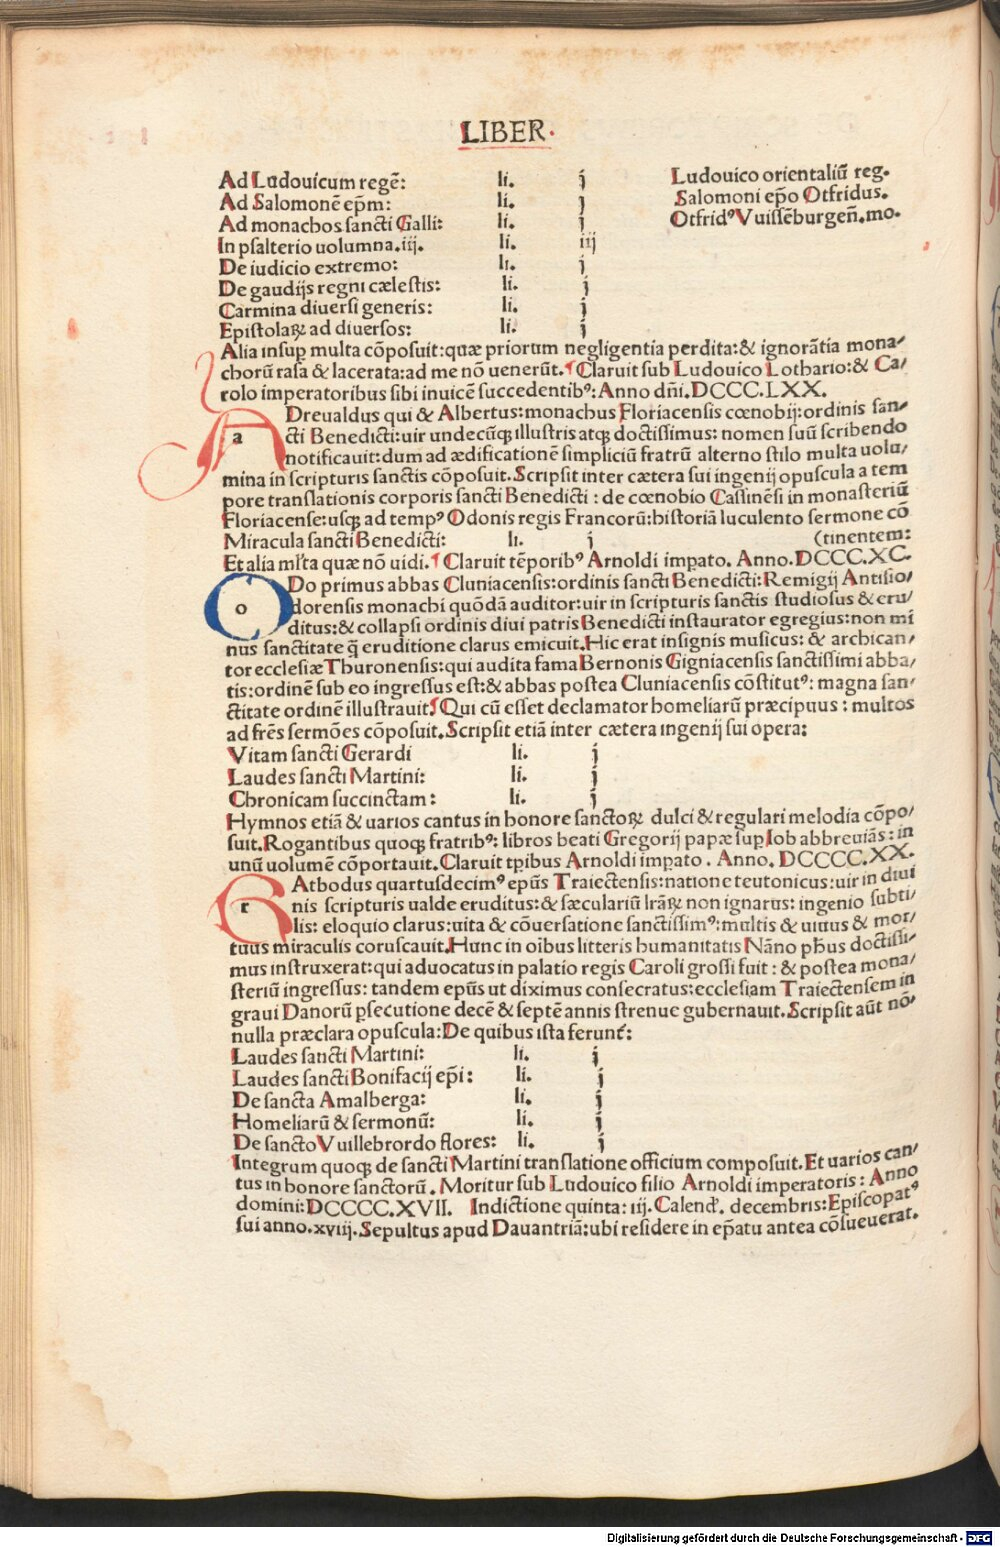 LIBER.
Ad Ludouicum regē: li. j Ludouico orientaliū reg.
Ad Salomonē ep̄m: li. j Salomoni ep̄o Otfridus.
Ad monachos sancti Galli: li. j Otfridꝰ Vuissēburgeñ. mo.
In psalterio uolumna. iij. li. iij
De iudicio extremo: li. j
De gaudijs regni cælestis: li. j
Carmina diuersi generis: li. j
Epistolaꝝ ad diuersos: li. j
Alia insuꝑ multa cōposuit: quæ priorum negligentia perdita: & ignorātia mona/
chorū rasa & lacerata: ad me nō uenerūt. ¶ Claruit sub Ludouico Lothario: & Ca/
rolo imperatoribus sibi inuicē succedentibꝰ: Anno dñi. DCCC.LXX.
aDreualdus qui & Albertus: monachus Floriacensis cœnobij: ordinis san/
cti Benedicti: uir undecūqꝫ illustris atqꝫ doctissimus: nomen suū scribendo
notificauit: dum ad ædificationē simpliciū fratrū alterno stilo multa uolu/
mina in scripturis sanctis cōposuit. Scripsit inter cætera sui ingenij opuscula a tem
pore translationis corporis sancti Benedicti : de cœnobio Cassinēsi in monasteriū
Floriacense: usqꝫ ad tempꝰ Odonis regis Francorū: historiā luculento sermone cō
Miracula sancti Benedicti: li. j (tinentem:
Et alia mľta quæ nō uidi. ¶ Claruit tēporibꝰ Arnoldi imꝑato. Anno. DCCC.XC.
oDo primus abbas Cluniacensis: ordinis sancti Benedicti: Remigij Antisio/
dorensis monachi quōdā auditor: uir in scripturis sanctis studiosus & eru/
ditus: & collapsi ordinis diui patris Benedicti instaurator egregius: non mi
nus sanctitate q̄ eruditione clarus emicuit. Hic erat insignis musicus: & archican/
tor ecclesiæ Thuronensis: qui audita fama Bernonis Gigniacensis sanctissimi abba/
tis: ordinē sub eo ingressus est: & abbas postea Cluniacensis cōstitutꝰ: magna san/
ctitate ordinē illustrauit. ¶ Qui cū esset declamator homeliarū præcipuus : multos
ad frēs sermōes cōposuit. Scripsit etiā inter cætera ingenij sui opera:
Vitam sancti Gerardi li. j
Laudes sancti Martini: li. j
Chronicam succinctam : li. j
Hymnos etiā & uarios cantus in honore sanctoꝝ dulci & regulari melodia cōpo/
suit. Rogantibus quoqꝫ fratribꝰ: libros beati Gregorij papæ suꝑ Iob abbreuiās : in
unū uolumē cōportauit. Claruit tꝑibus Arnoldi imꝑato . Anno. DCCCC.XX.
rAtbodus quartusdecimꝰ ep̄us Traiectensis: natione teutonicus: uir in diui
nis scripturis ualde eruditus: & sæculariū lr̄aꝝ non ignarus: ingenio subti/
lis: eloquio clarus: uita & cōuersatione sanctissimꝰ: multis & uiuus & mor/
tuus miraculis coruscauit. Hunc in oībus litteris humanitatis Nāno ph̄us doctissi/
mus instruxerat: qui aduocatus in palatio regis Caroli grossi fuit : & postea mona/
steriū ingressus: tandem ep̄us ut diximus consecratus: ecclesiam Traiectensem in
graui Danorū ꝑsecutione decē & septē annis strenue gubernauit. Scripsit aūt nō/
nulla præclara opuscula: De quibus ista ferunť:
Laudes sancti Martini: li. j
Laudes sancti Bonifacij ep̄i : li. j
De sancta Amalberga: li. j
Homeliarū & sermonū: li. j
De sancto Vuillebrordo flores: li. j
Integrum quoqꝫ de sancti Martini translatione officium composuit. Et uarios can/
tus in honore sanctorū. Moritur sub Ludouico filio Arnoldi imperatoris : Anno
domini: DCCCC.XVII. Indictione quinta: iij. Calenď. decembris: Episcopatꝰ
sui anno. xviij. Sepultus apud Dauantriā: ubi residere in ep̄atu antea cōsueuerat.
Digitalisierung gefördert durch die Deutsche Forschungsgemeinschaft - DFG